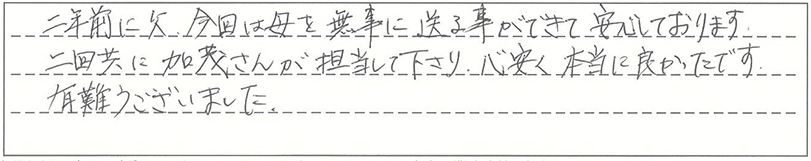 二年前に父、今回は母を無事に送る事ができて安心しております。
二回共に加茂さんが担当して下さり、心安く本当に良かったです。
有難うございました。